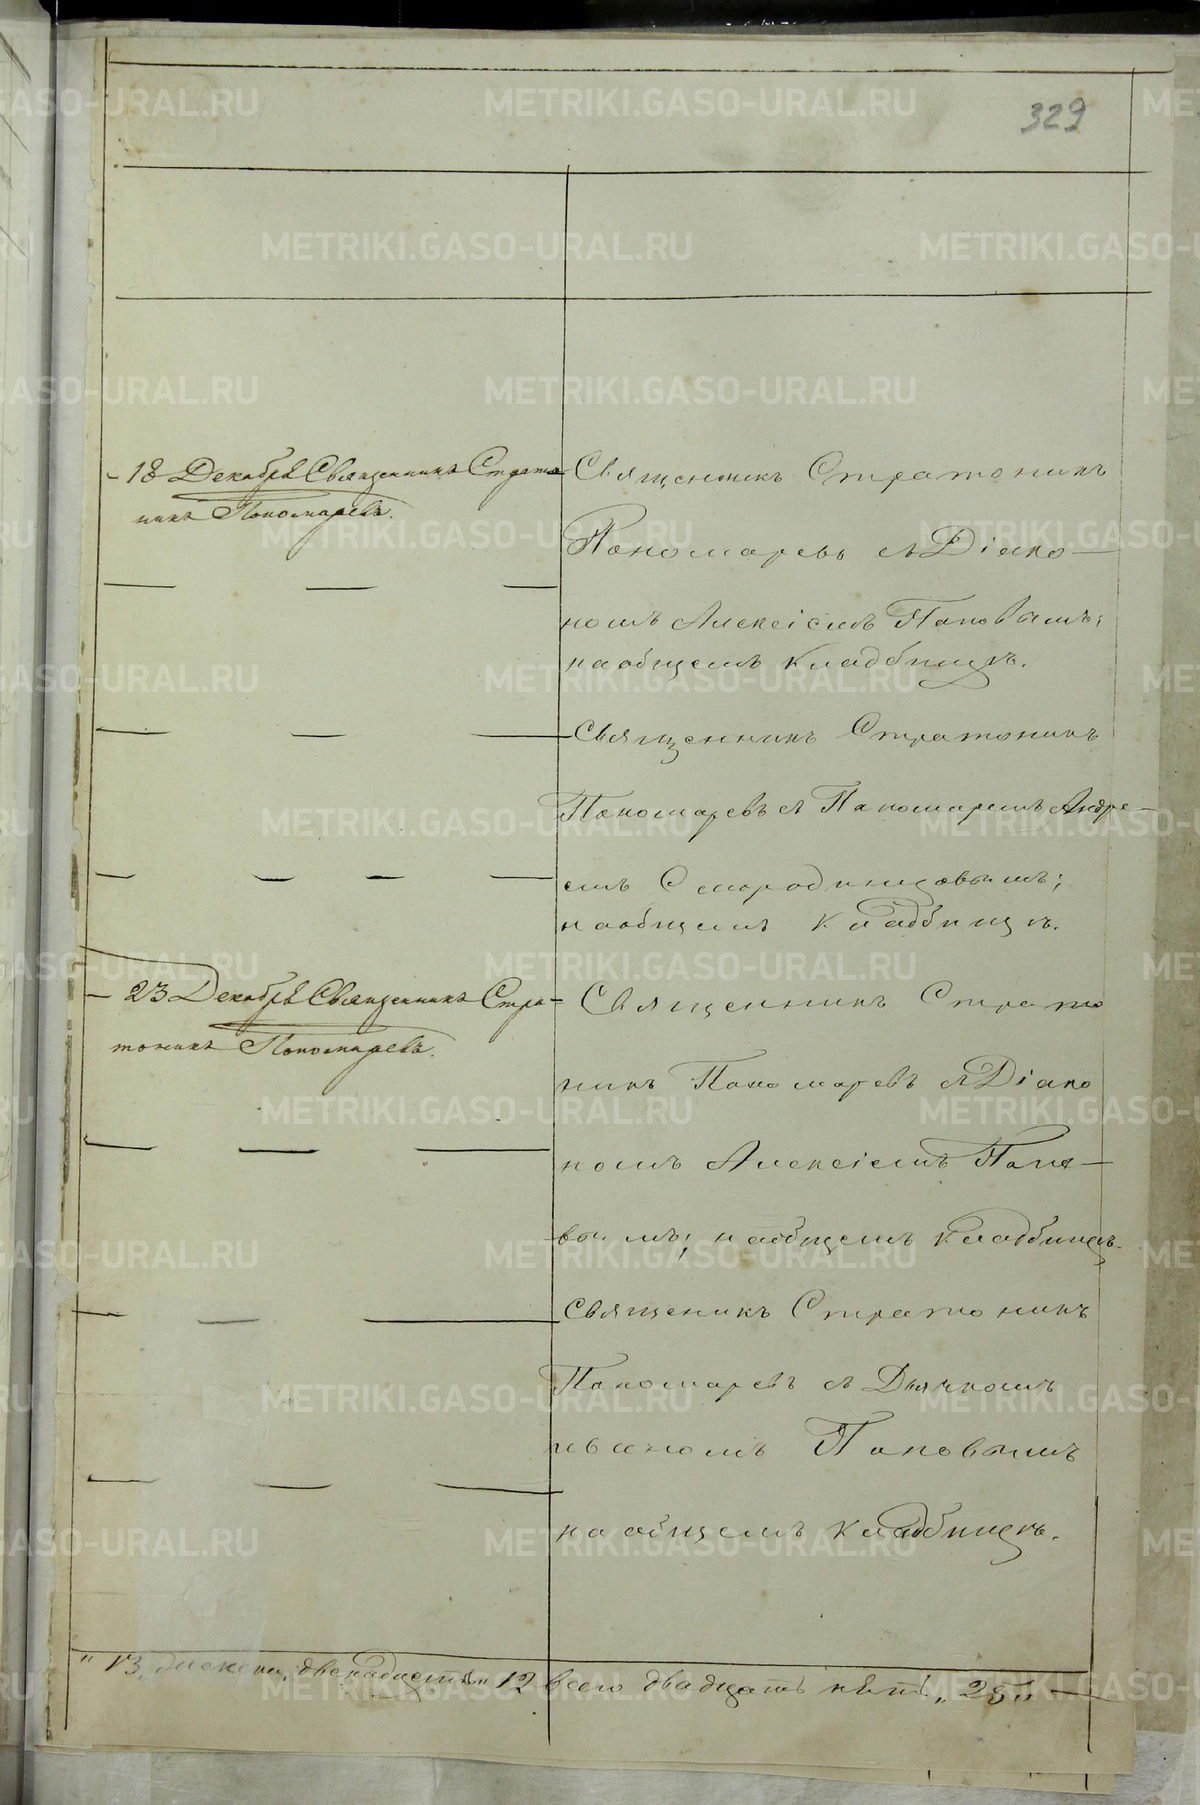 329
18 Декабря Священникъ Страто
никъ Пономаревъ.
Священикъ Стратоникъ
Пономаревъ съ Діако—
номъ Алексіемъ Поповымъ;
на общемъ кладбищѣ.
Священникъ Стратоникъ
Пономаревъ съ Пономаремъ Андре—
емъ Смородинцовымъ;
на общемъ кладбищѣ.
23 Декабря Священникъ Стра=
тоникъ Пономаревъ.
Священникъ Страто
никъ Пономаревъ съ Діако
номъ Алексіемъ Попо—
вымъ; на общемъ кладбищѣ.
Священикъ Стратоникъ
Пономаревъ съ Дьячкомъ
Иваномъ Поповымъ
на общемъ кладбищѣ.
" 13, женска, двенадцать " 12 всего двадцать пять, 25 "
METRIKI.GASO-URAL.RU